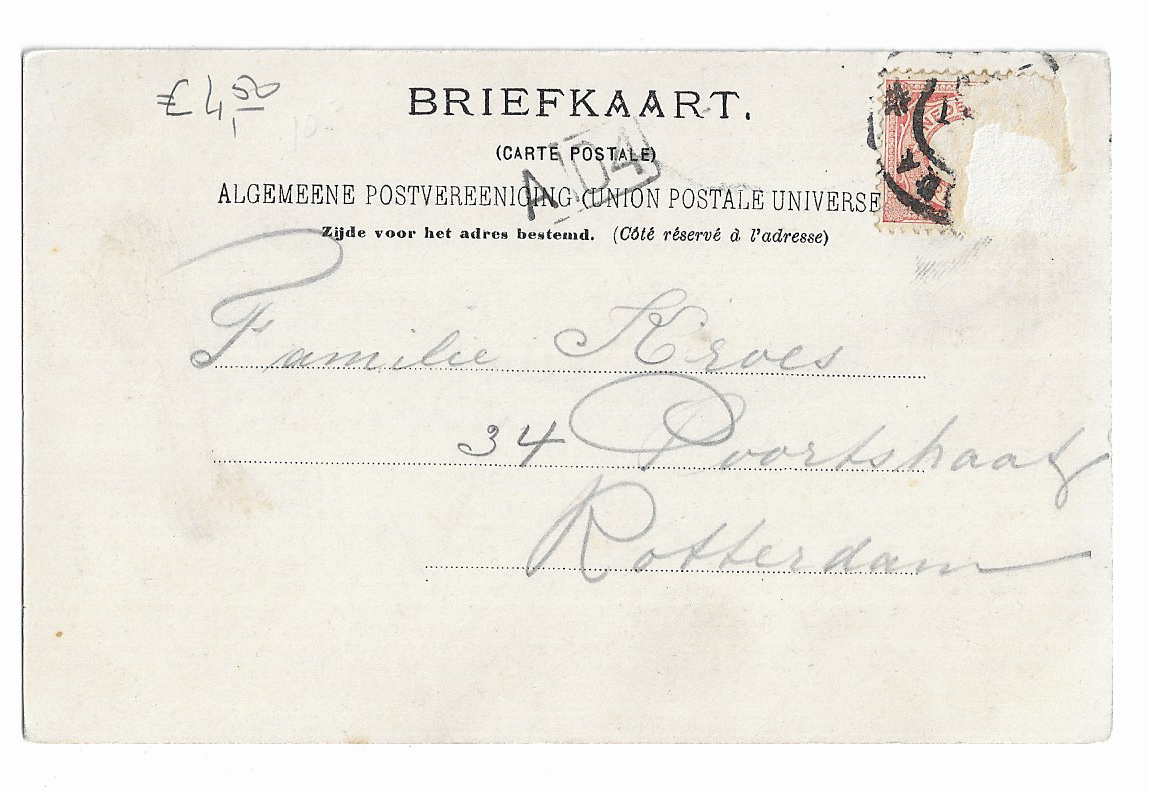 £ 4,50
BRIEFKAART.
(CARTE POSTALE)
A D4
ALGEMEENE POSTVEREENIGING (UNION POSTALE UNIVERSE
Zijde voor het adres bestemd. (Côté réservé à l'adresse)
Familie Kroes
34 Poortstraat
Rotterdam